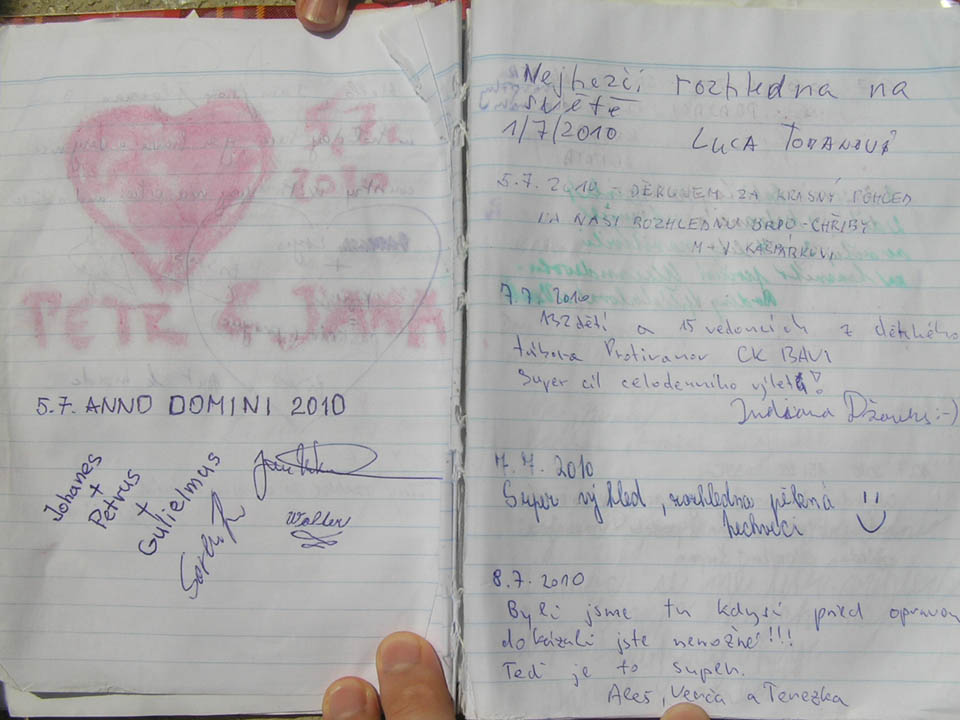 5.7.
2010
PETR & JANA
5.7. ANNO DOMINI 2010
Johanes
+
Petrus
+
Gulielmus
Walter
Nejhezčí rozhledna na
světě
1/7/2010 LUCA TOMANOVÁ
5.7. 2010 - DĚKUJEM ZA KRÁSNÝ POHLED
NA NAŠÍ ROZHLEDNU BRDO - CHŘIBY
M + V KAŠPÁRKOVI
7.7.2010
132 dětí a 15 vedoucích z dětského
tábora Protivanov CK BAVI
Super cíl celodenního výletu!
Indiana Džouns :-)
7.7. 2010
Super výhled, rozhledna pěkná
8.7.2010
Byli jsme tu kdysi před opravou
dokázali jste nemožné!!!
Teď je to super.
Aleš, Verča a Terezka